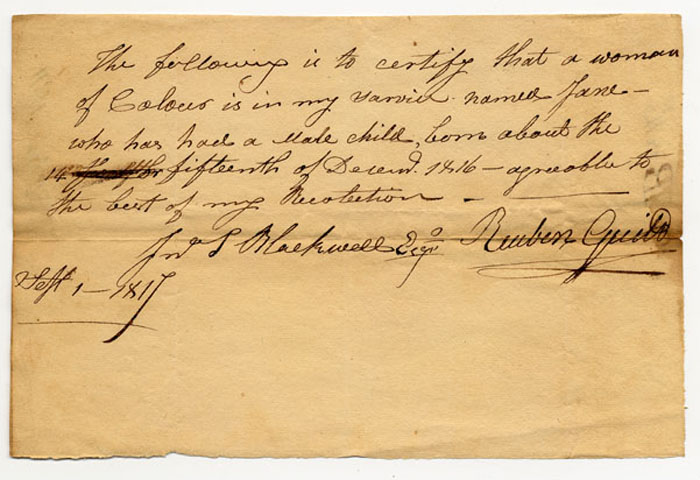 The following is to certify that a woman
of Colour is in my Sarvice named Jane –
who has had a Male child, born about the
14 or fifteenth of Decemr. 1816 – agreable to
the best of my Recolection –
Jno. S Blackwell Esqr. Reuben Guild
Sept 1 – 1817